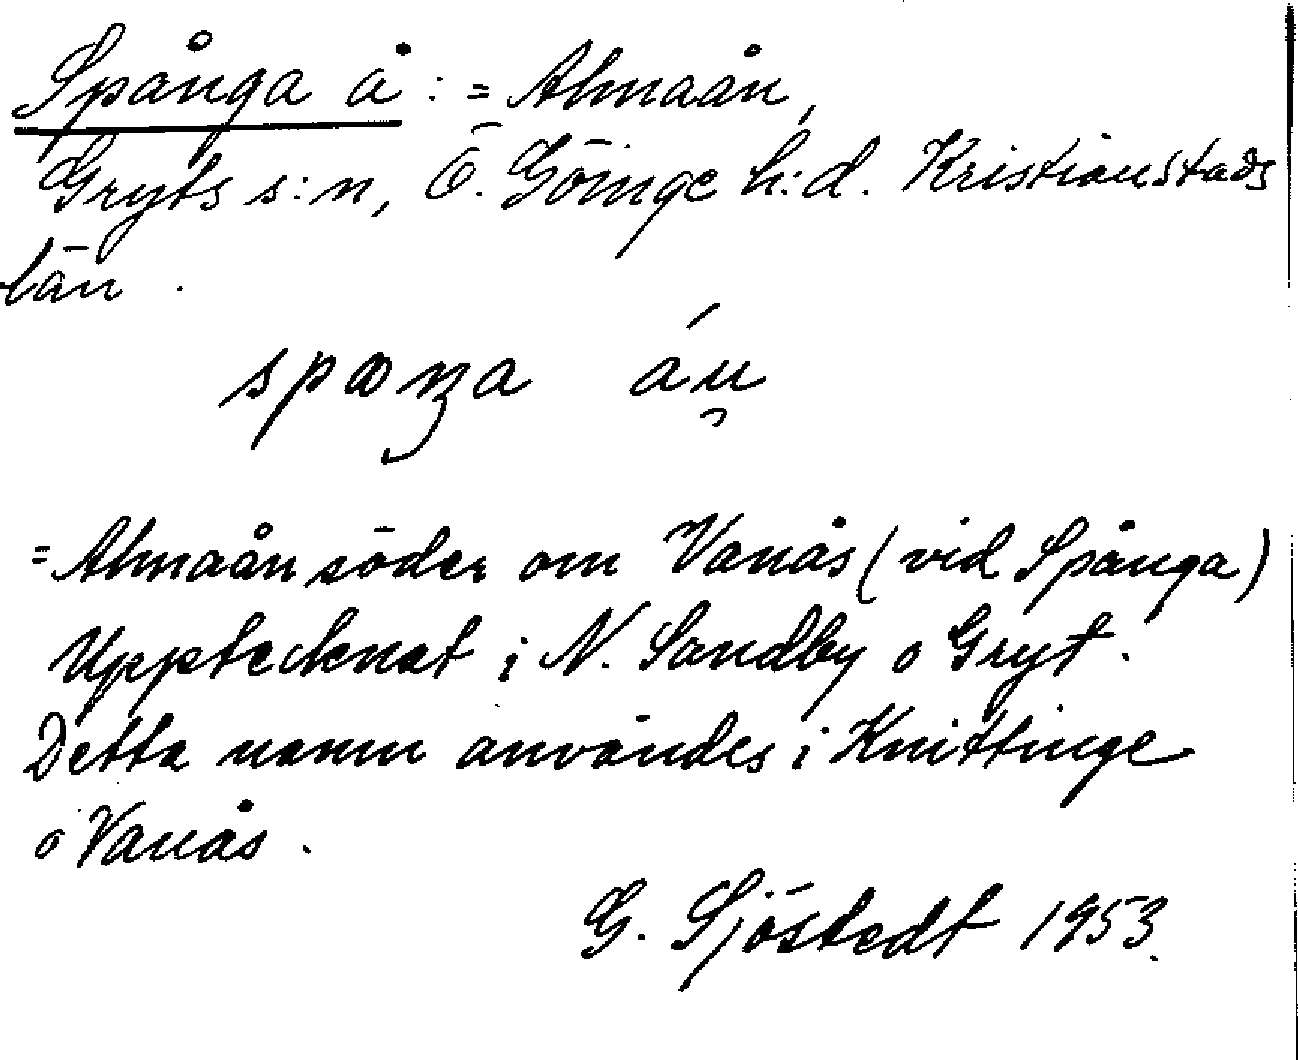 Spånga å : = Almaån,
Gryts s:n, Ö. Göinge h:d. Kristianstads
län.
= Almaån söder om Vanås (vid Spånga)
Upptecknat i N. Sandby o Gryt.
Detta namn användes i Knittinge
o Vanås.
G. Sjöstedt 1953.